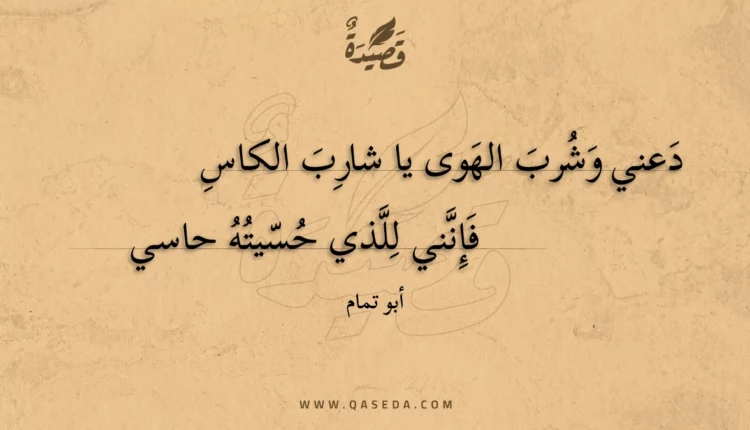 قَصيدَةٌ
دَعني وَشُربَ الهَوى يا شارِبَ الكاسِ
فَإِنَّني لِلَّذي حُسّيتُهُ حاسي
أبو تمام
WWW.QASEDA.COM